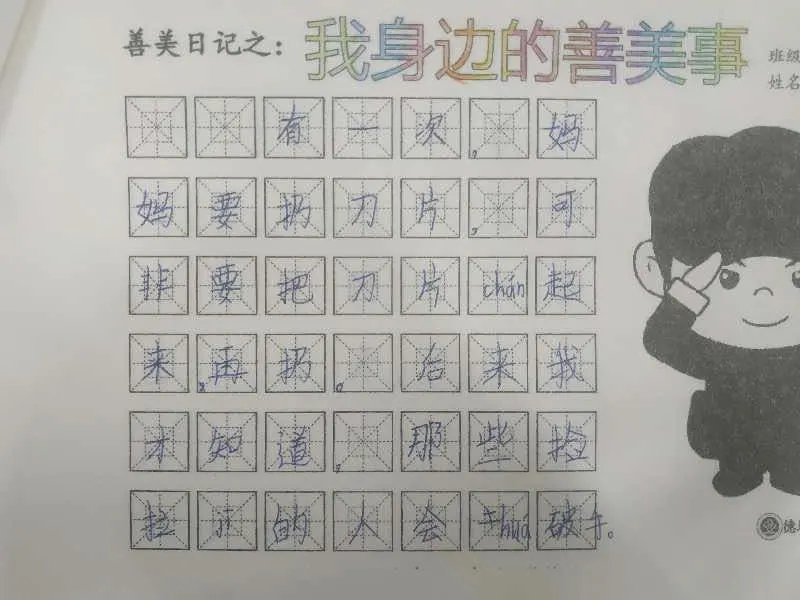 善美日记之：我身边的善美事
班级
姓名
有一次，妈
妈要扔刀片，可
非要把刀片chán起
来再扔。后来我
才知道，那些捡
垃圾的人会被huá破手。